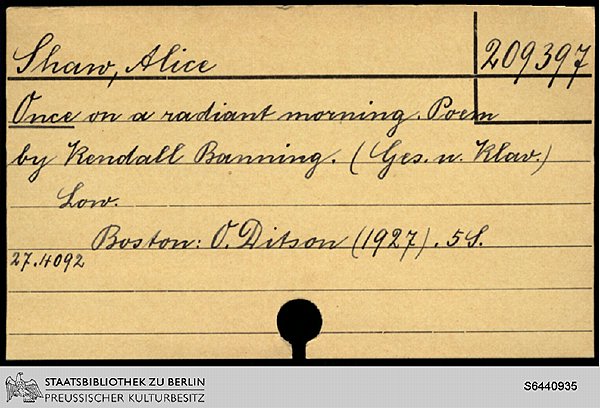 Shaw, Alice
209397
Once on a radiant morning. Poem
by Kendall Banning. (Ges. u. Klav.)
Low.
Boston: O. Ditson (1927). 5 S.
27.4092
STAATSBIBLIOTHEK ZU BERLIN
PREUSSISCHER KULTURBESITZ
S6440935